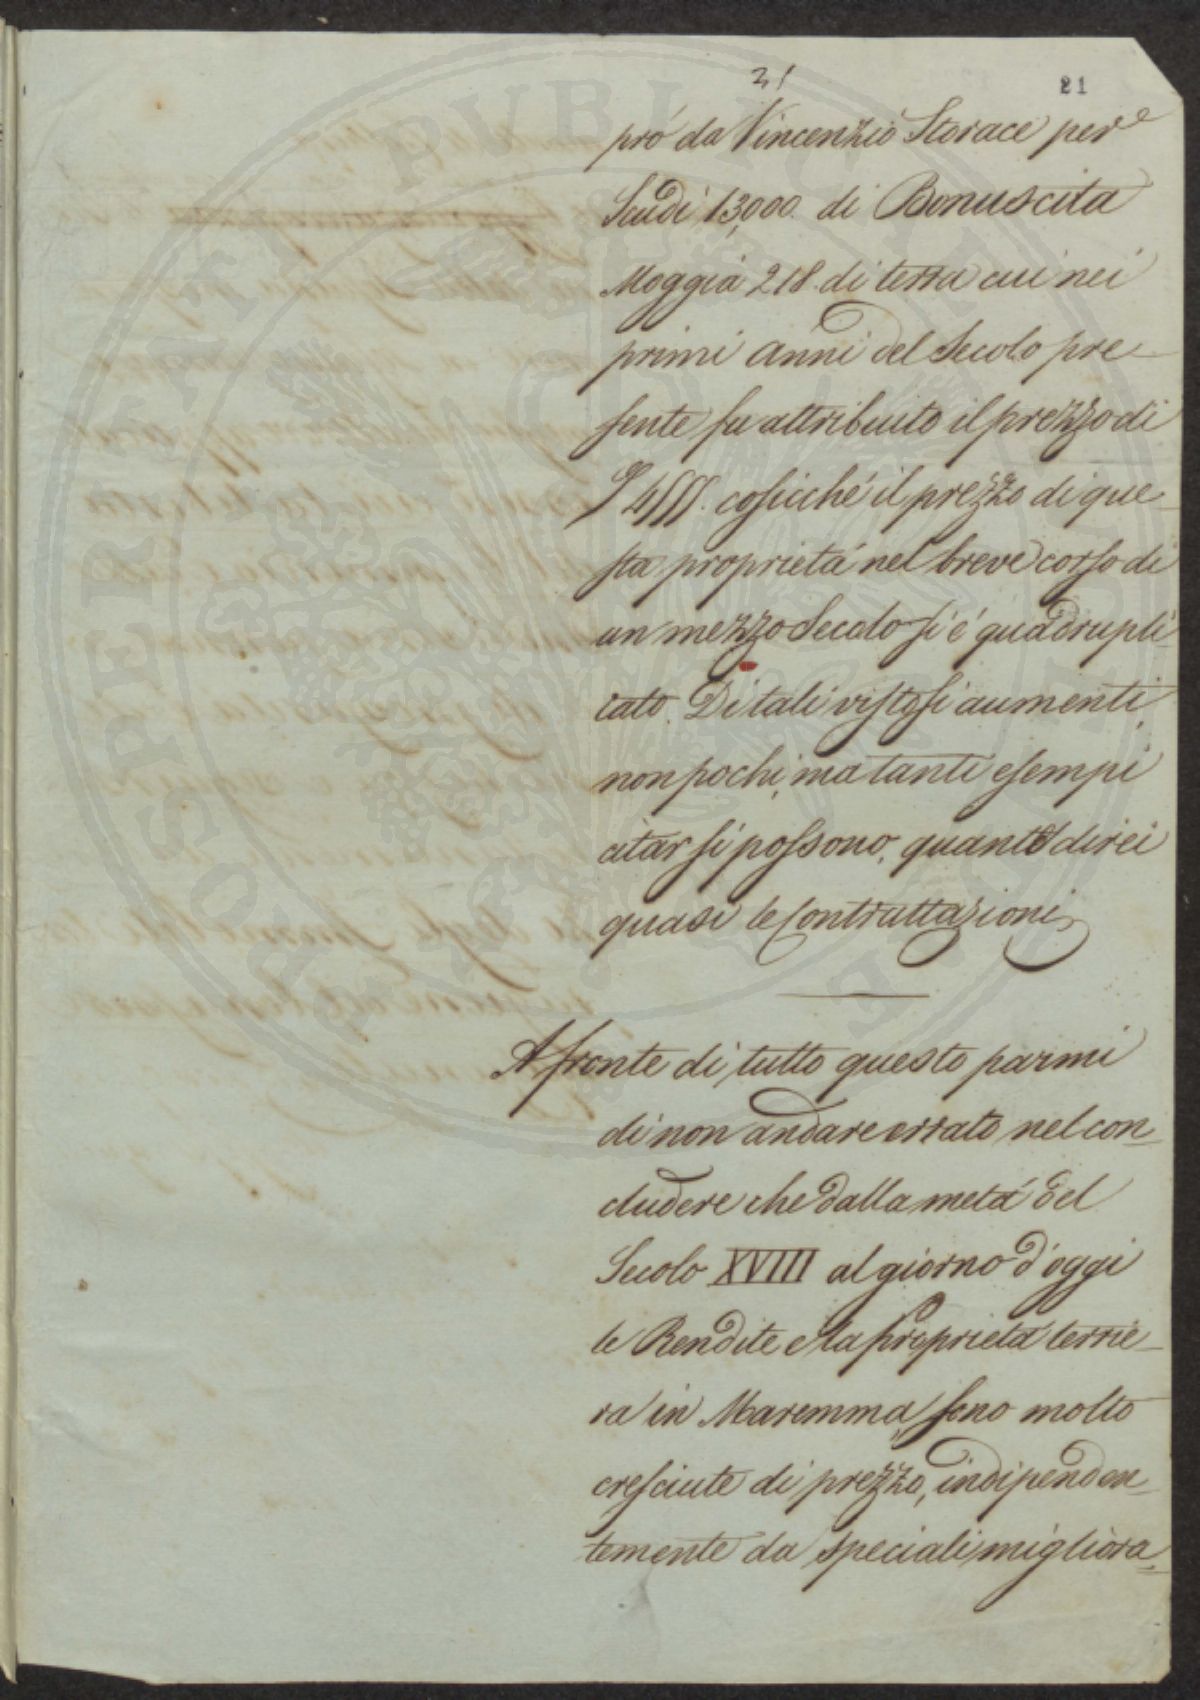 31
21
pró da Vincenzio Storace per
Scudi 13,000. di Bonuscita
Moggia 218. di terra cui nei
primi anni del Secolo pre-
sente fu attribuito il prezzo di
cosicché il prezzo di que-
sta proprietá nel breve corso di
un mezzo Secolo si é quadrupli-
cato. Di tali vistosi aumenti,
non pochi, ma tanti esempi
citar si possono, quante direi
quasi le Contrattazioni
A fronte di tutto questo parmi
di non andare errato nel con-
cludere che dalla metá del
Secolo XVIII al giorno d'oggi
le Rendite e la proprietá terrie-
ra in Maremma, sono molto
cresciute di prezzo, indipenden-
temente da speciali migliora-